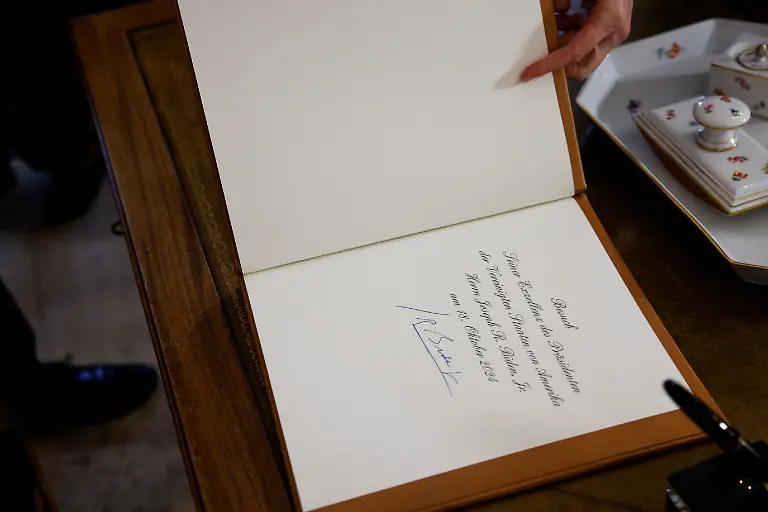 Besuch
Seiner Exzellenz des Präsidenten
der Vereinigten Staaten von Amerika
Herrn Joseph R. Biden, Jr.
am 18. Oktober 2024